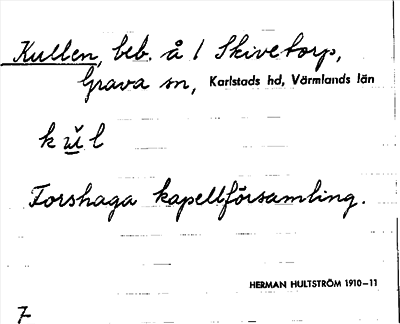 Kullen, beb. å 1 Skivetorp,
Grava sn, Karlstads hd, Värmlands län
Forshaga kapellförsamling.
HERMAN HULTSTRÖM 1910–11
7